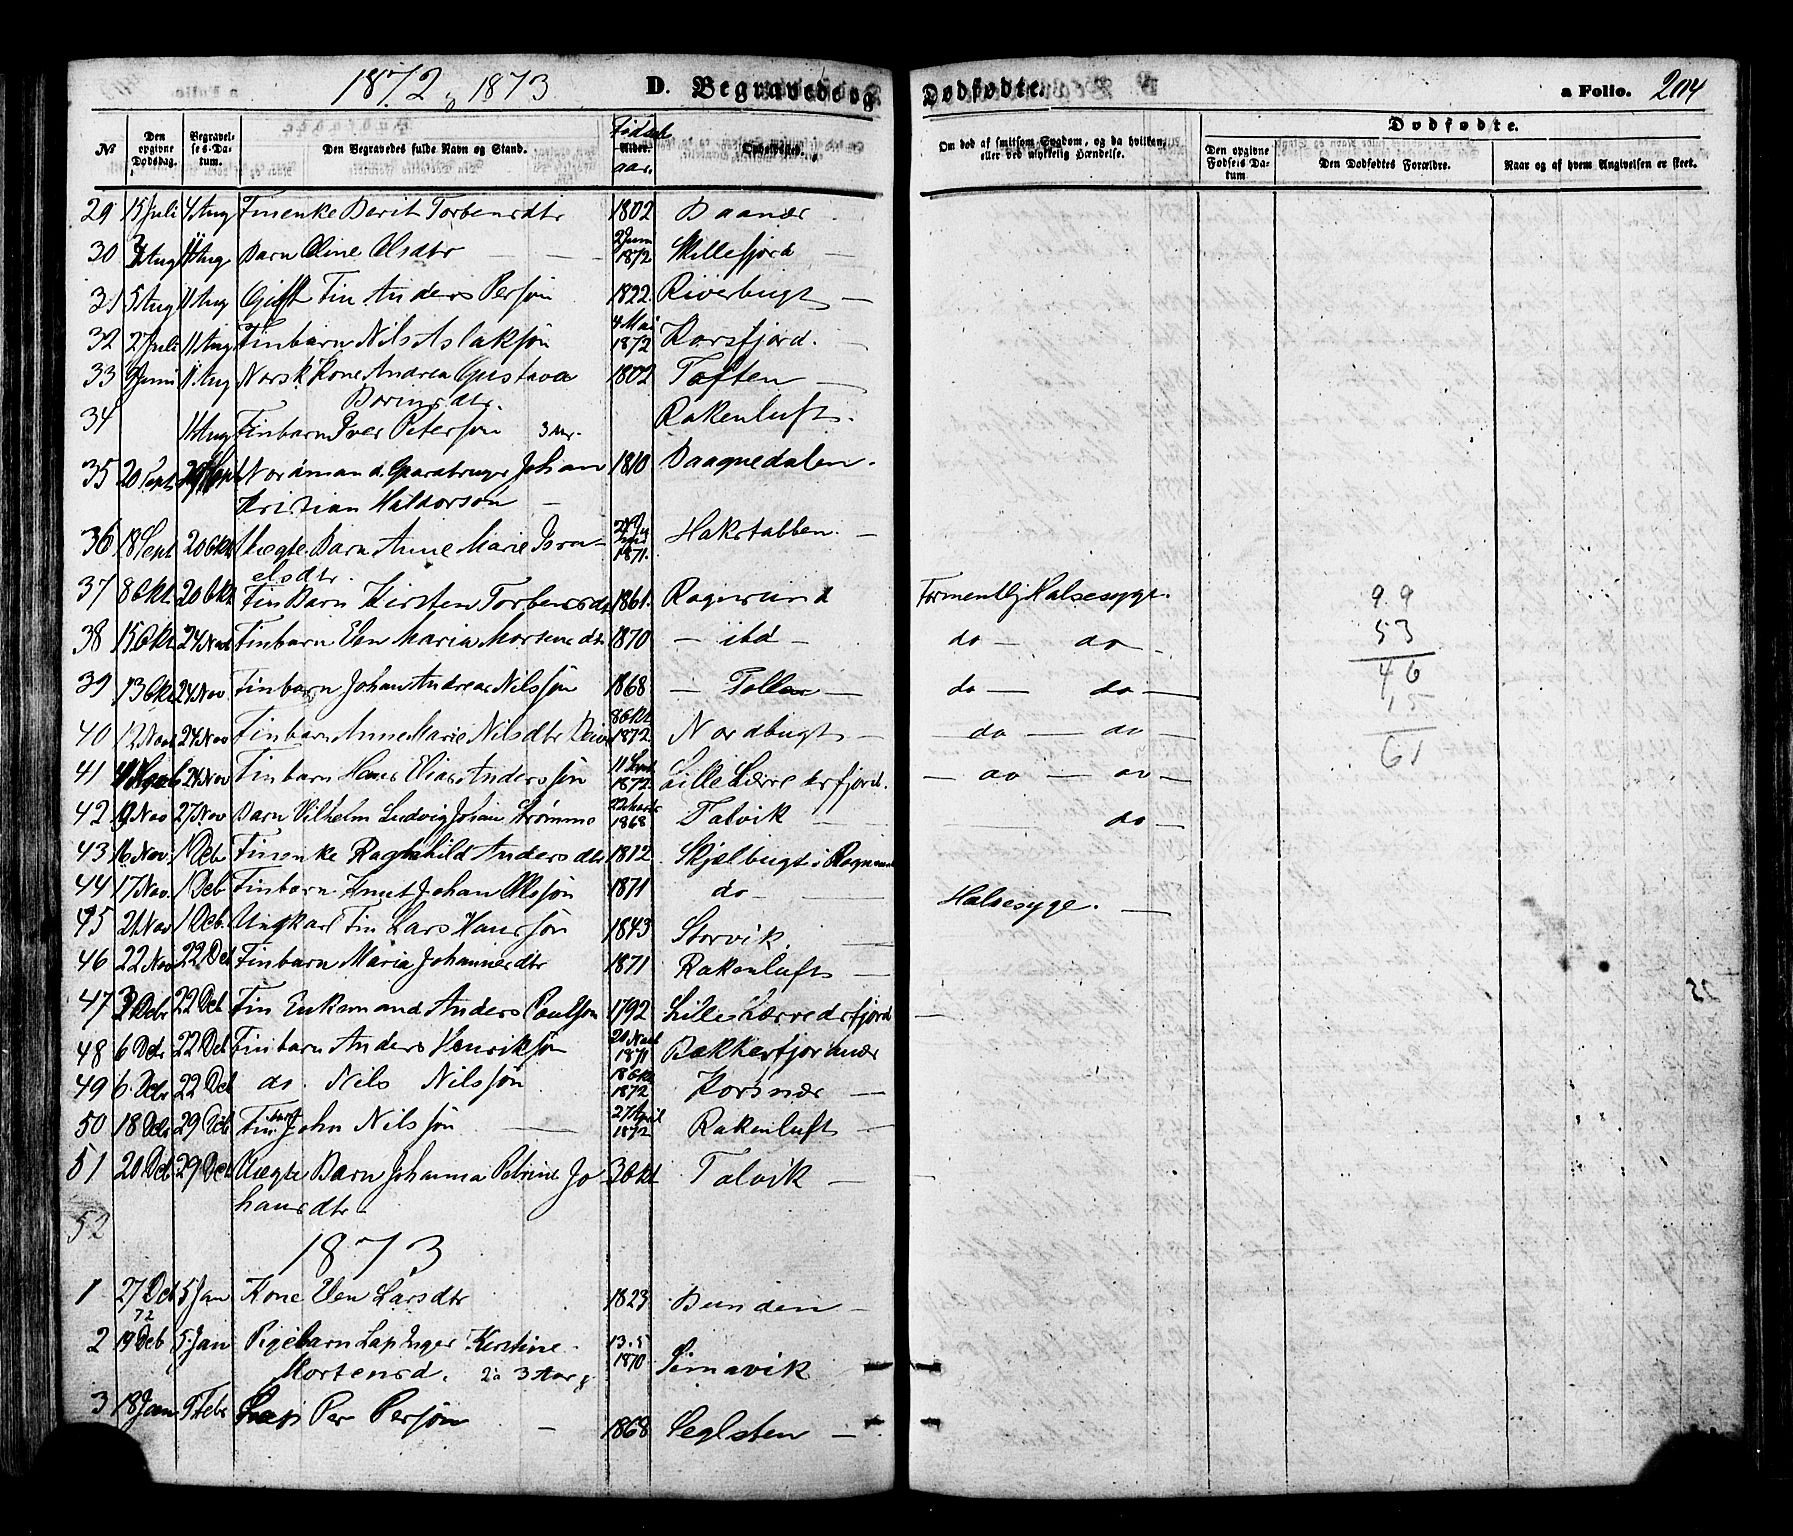 1872 & 1873 D. Begravede og Dødfødte. a Folio. 204
No Den opgivne Dødsdag. Begravelses-Datum. Den Begravedes fulde Navn og Stand. Fødselsaar. Opholdssted. Om død af smitsom Sygdom, og da hvilken, eller ved ulykkelig Hændelse. Dødfødte. Den opgivne Fødsels Datum Den Dødfødtes Forældre. Naar og af hvem Angivelsen er skeet.
29 15 Juli 4 Aug Finenke Berit Torbensdtr 1802 Baanær
30 Aug 11 Aug Barn Oline Olsdtr 2 Juni 1872 Skillefjord —
31 5 Aug 11 Aug Gift Fin Anders Persøn 1822 Riverbugt —
32 2 Juli 11 Aug Finbarn Nils Aslaksøn 4 Mai 1872 Korsfjord. —
33 9 Juni 11 Aug Norsk Kone Andrea Gustava 1802 Toften —
34 11 Aug Finbarn Iver Petersøn 3 Rakenluft.
35 20 Sept 29 Sept Nordmand Gaardbruger Johan 1810 Baagnedalen.
Kristian Haldorsøn —
36 18 Sept 20 Okt Uægte Barn Anne Marie Isra- 1871. Hakstabben. —
elsdtr.
37 8 Okt 20 Okt Fin Barn Kirsten Torbensdtr 1861. Rognsund Formentlig Halsesyge. 99
38 15 Okt 24 Nov Finbarn Elen Maria Mortensdtr 1870 — ibd — do — do — 53
39 13 Okt 24 Nov Finbarn Johan Andreas Nilssøn 1868 — — do — do — 46
15
40 12 Nov 24 Nov Finbarn Anne Marie Nilsdtr 8 Okt 1872 Nordbugt — — do — do — 61
41 24 Nov Finbarn Hans Elias Anderssøn 11 Sept 1872 Lille Lærredsfjord. — do — do —
42 9 Nov 27 Nov Barn Vilhelm Ludvig Johan Strømme 22 Marts 1868 Talvik — do —
43 16 Nov 1 Deb Finenke Raghnhild Andersdtr 1812 Skjælbugt i Rognsund
44 17 Nov. 1 Deb Finbarn Knut Johan Olssøn 1871 do — Halsesyge. —
45 21 Nov 1 Deb. Ungkarl Fin Lars Hanssøn 1843 Storvik. —
46 22 Nov 22 Deb Finbarn Maria Johannesdtr 1871 Rakenluft —
47 3 Debr 22 Deb Fin Enkemand Anders Paulsøn 1792 Lille Lærredsfjord —
48 6 Debr 22 Deb Finbarn Anders Henriksøn 20 Novb 1871 Bekkerfjordnær
49 6 Debr 22 Deb do. Nils Nilssøn 18 Okt 1872 Korsnær —
50 18 Debr 29 Deb Finbarn John Nilssøn — 27 April 1872 Rakenluft —
51 20 Deb 29 Deb Uægte Barn Johanna Petrine Jo- 3 Okt Talvik —
hansdtr —
52
1873
1 27 Deb 72 5 Jan Kone Elen Larsdtr 1823 Bunden —
2 19 Deb 5 Jan Pigebarn Lap Inger Kirstine 13.5 1870 Simavik
Mortensd. 2 a 3 Aar g
3 18 Jan 9 Febr Lap Per Persøn — 1868 Seglsten —